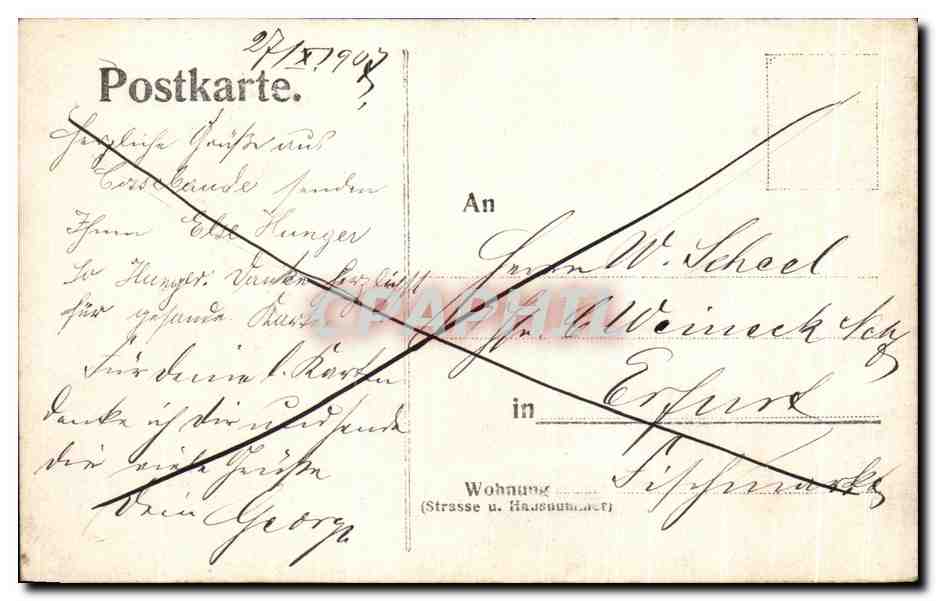 27/XI.1907
Postkarte.
Herzliche Grüße aus
Cossebaude senden
Ihnen Else Hunger
Hunger. Danke herzlichst
für gesande Karte
Für deine l. Karten
danke ich Dir und sende
dir viele Grüße
Dein Georg
An
Herrn W. Scheel
Weineck
in Erfurt
Wohnung Fischmarkt
(Strasse u. Hausnummer)
CPAPHIL